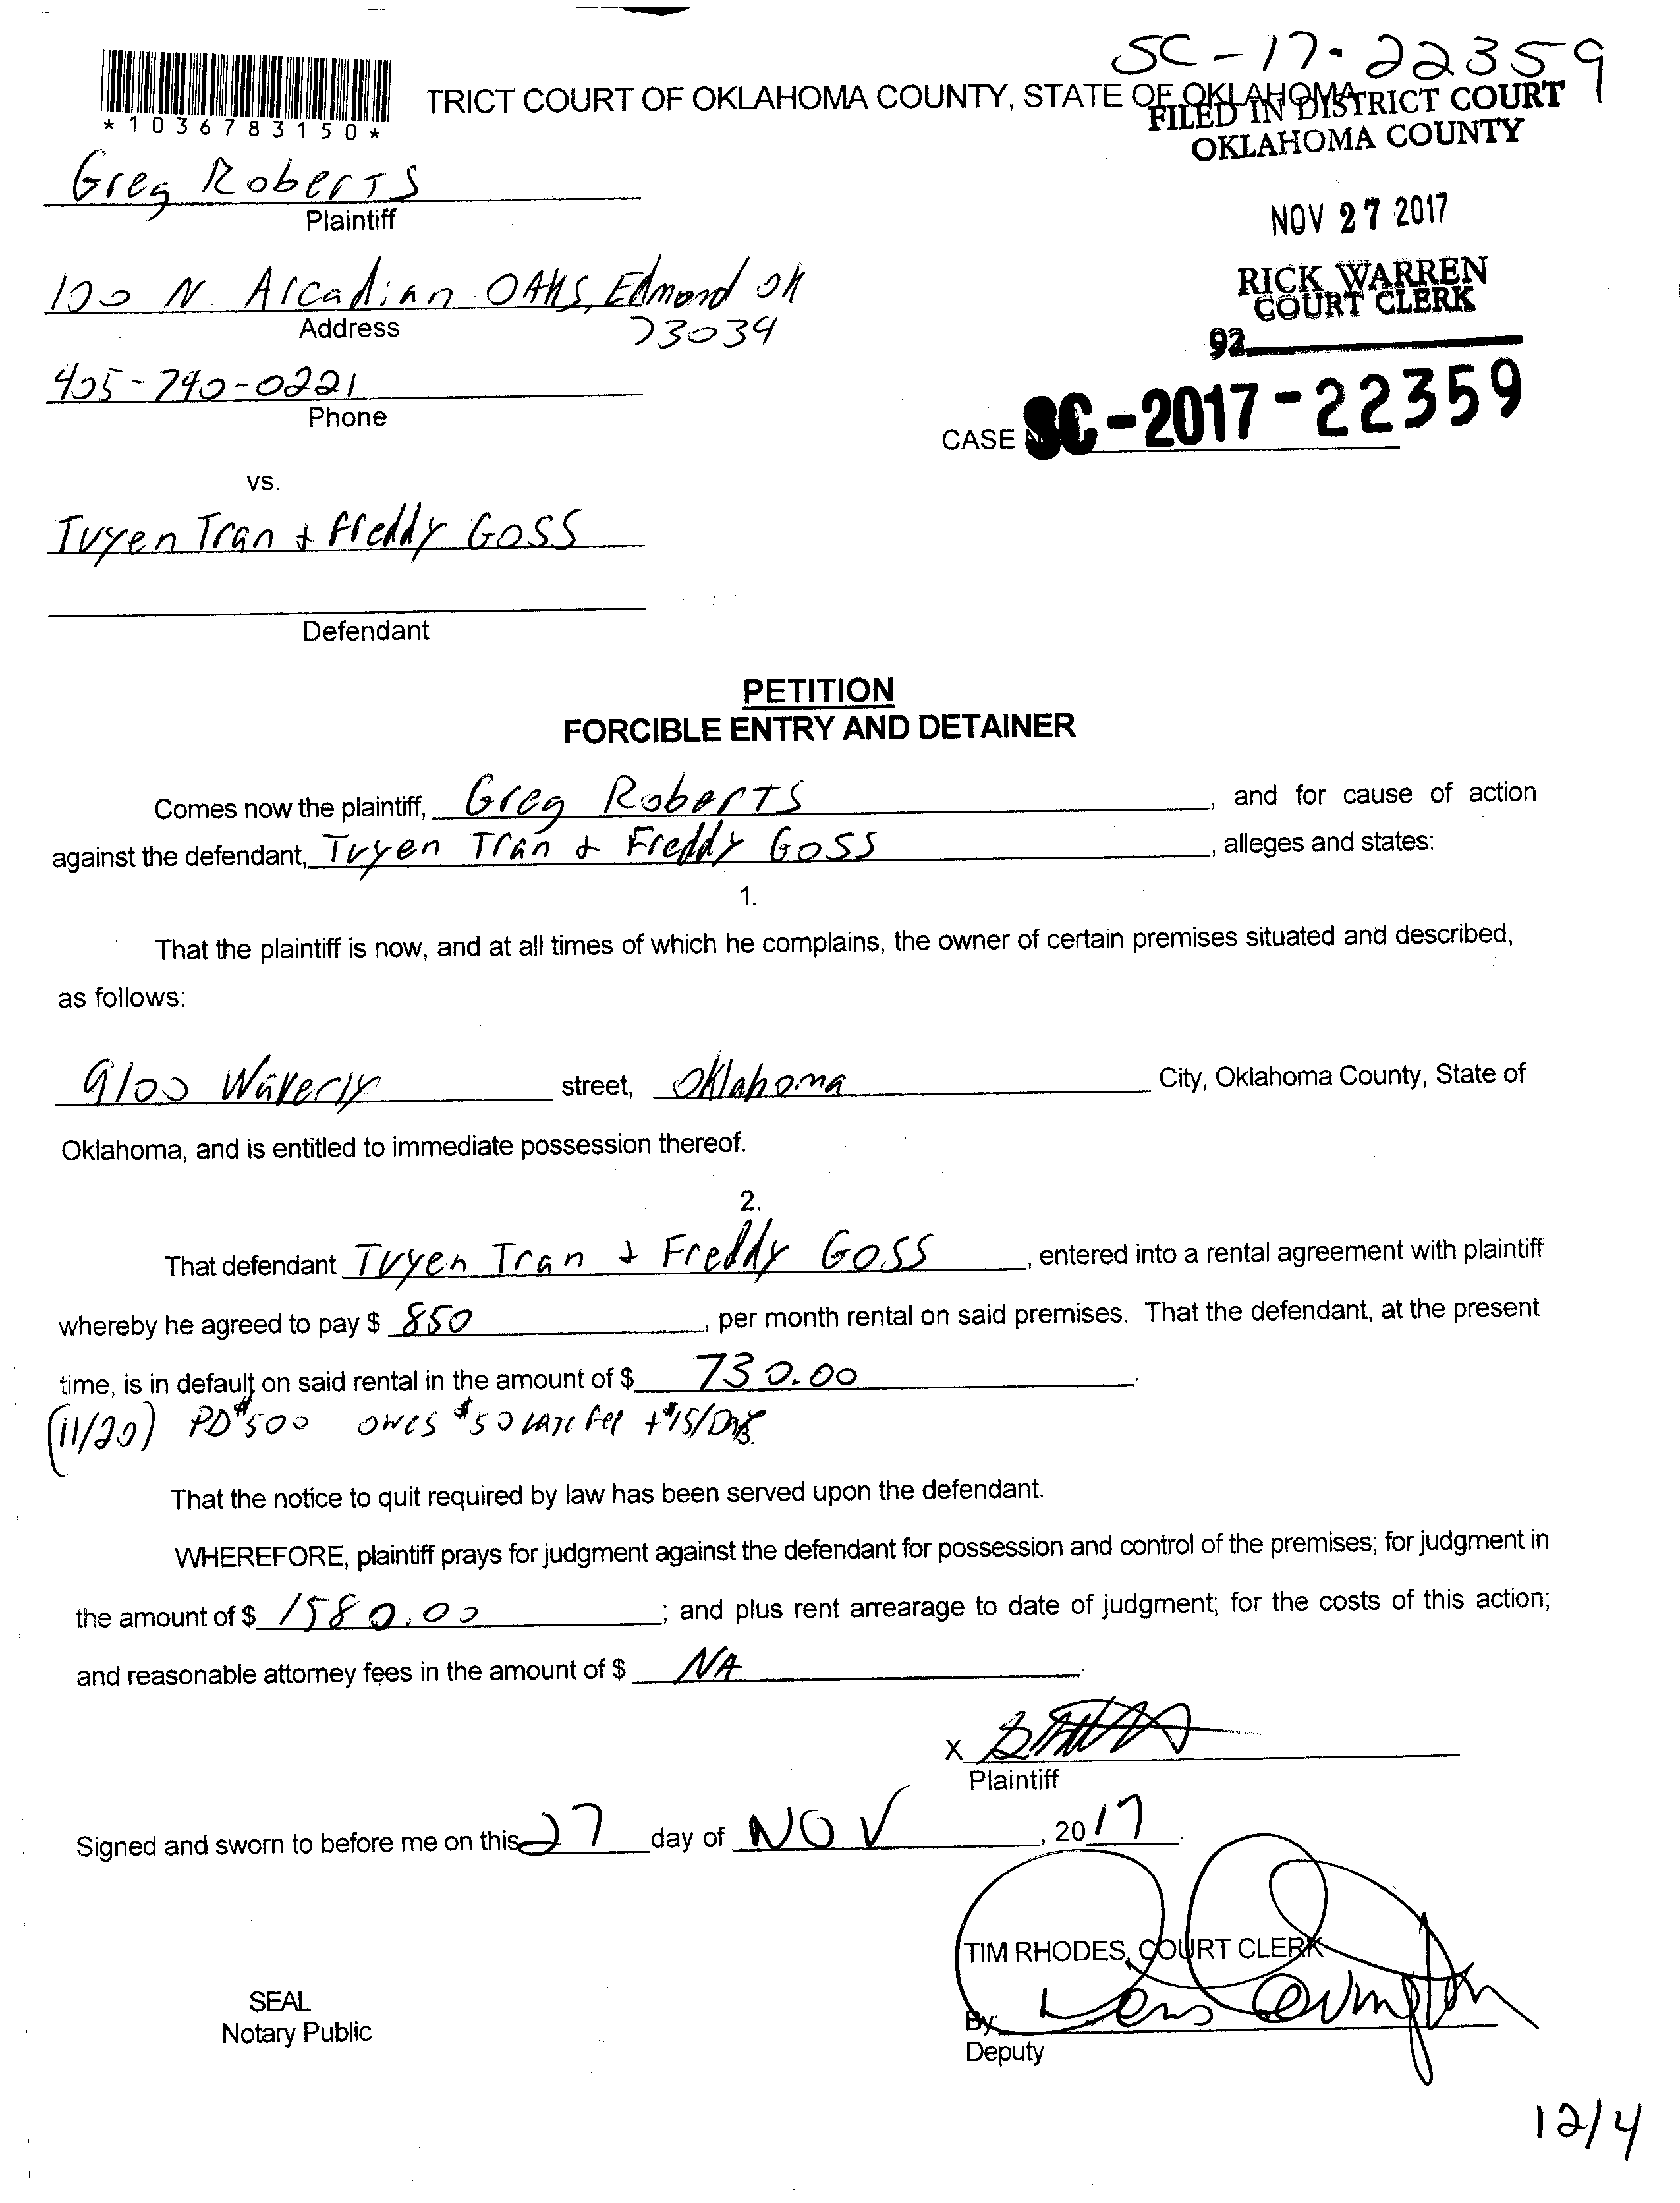 SC-17-22359
*1036783150*
TRICT COURT OF OKLAHOMA COUNTY, STATE OF OKLAHOMA
FILED IN DISTRICT COURT
OKLAHOMA COUNTY
Greg Roberts
Plaintiff
NOV 27 2017
100 N. Arcadian OAKS, Edmond OK
73034
Address
RICK WARREN
COURT CLERK
92
405-740-0221
Phone
CASE SC-2017-22359
vs.
Tuyen Tran & Freddy Goss
Defendant
PETITION
FORCIBLE ENTRY AND DETAINER
Comes now the plaintiff, Greg Roberts, and for cause of action
against the defendant, Tuyen Tran & Freddy Goss, alleges and states:
1.
That the plaintiff is now, and at all times of which he complains, the owner of certain premises situated and described,
as follows:
9100 Waverly street, Oklahoma City, Oklahoma County, State of
Oklahoma, and is entitled to immediate possession thereof.
2.
That defendant Tuyen Tran & Freddy Goss, entered into a rental agreement with plaintiff
whereby he agreed to pay $ 850, per month rental on said premises. That the defendant, at the present
time, is in default on said rental in the amount of $ 730.00.
(11/20) PD $500 owes $50 late fee + $15/Day.
That the notice to quit required by law has been served upon the defendant.
WHEREFORE, plaintiff prays for judgment against the defendant for possession and control of the premises; for judgment in
the amount of $ 1580.00; and plus rent arrearage to date of judgment; for the costs of this action;
and reasonable attorney fees in the amount of $ NA.
X
Plaintiff
Signed and sworn to before me on this 27 day of NOV, 2017.
TIM RHODES, COURT CLERK
SEAL
Notary Public
By:
Deputy
12/4